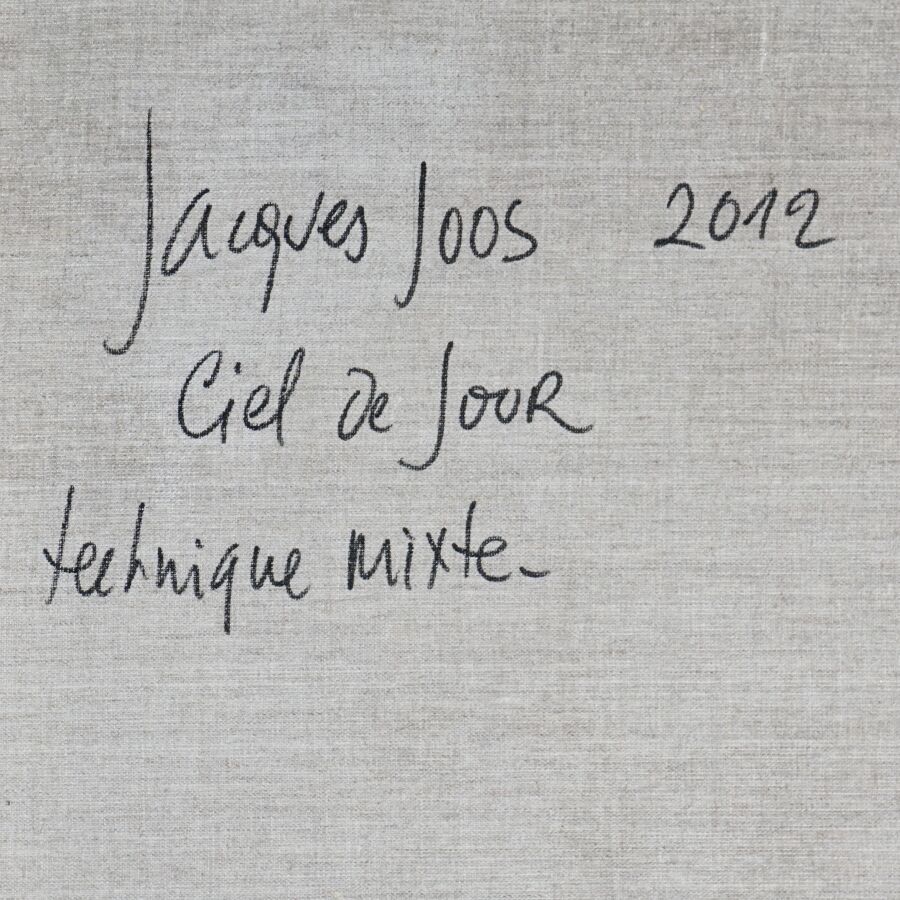 Jacques Joos 2012
Ciel de Jour
technique mixte-